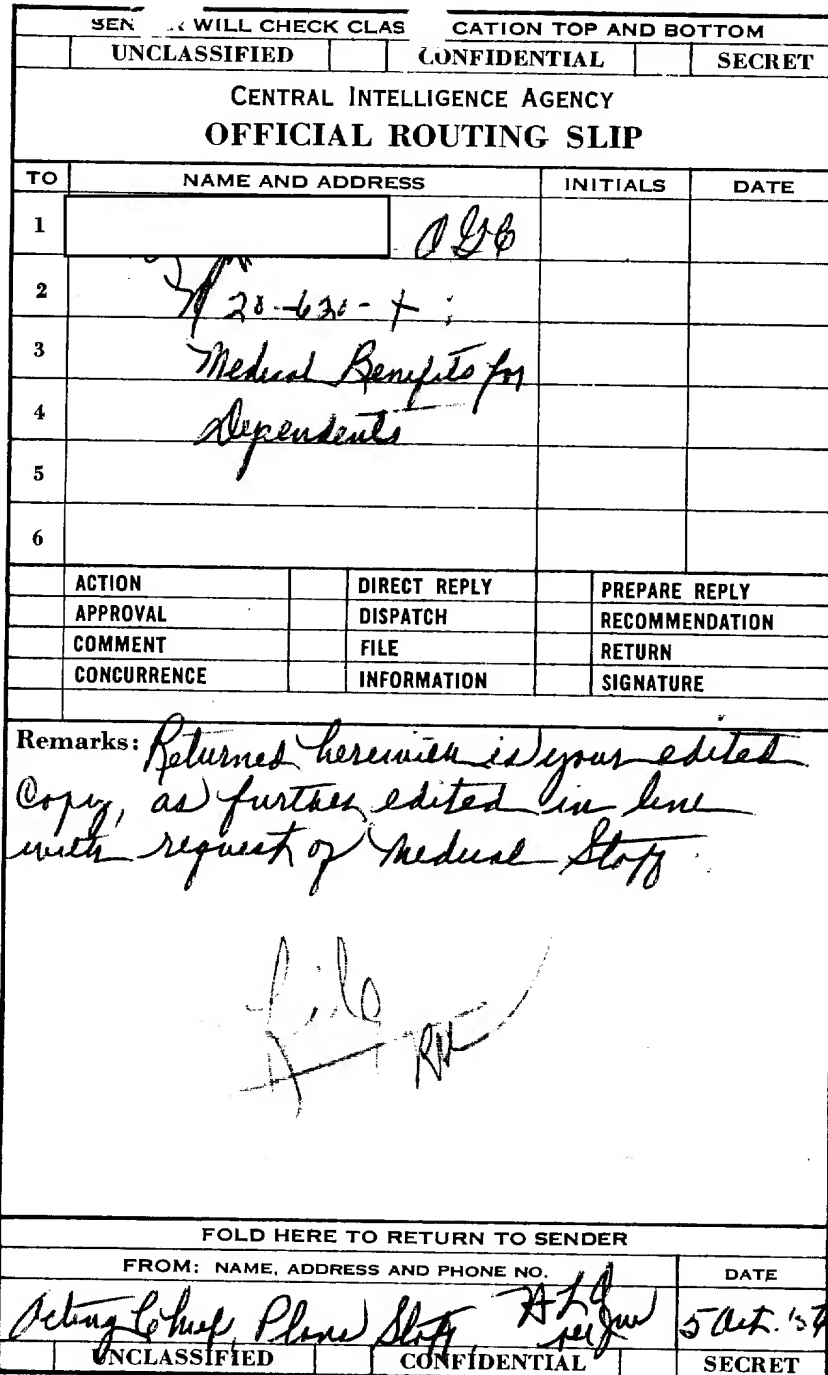 SEN R WILL CHECK CLAS CATION TOP AND BOTTOM
UNCLASSIFIED CONFIDENTIAL SECRET
CENTRAL INTELLIGENCE AGENCY
OFFICIAL ROUTING SLIP
TO NAME AND ADDRESS INITIALS DATE
1 OGC
2 20-630-
3 Medical Benefits for
4 Dependents
5
6
ACTION DIRECT REPLY PREPARE REPLY
APPROVAL DISPATCH RECOMMENDATION
COMMENT FILE RETURN
CONCURRENCE INFORMATION SIGNATURE
Remarks: Returned herewith is your edited
Copy, as further edited in line
with request of Medical Staff.
File
FOLD HERE TO RETURN TO SENDER
FROM: NAME, ADDRESS AND PHONE NO. DATE
Acting Chief, Plans Staff per 5 Oct.
UNCLASSIFIED CONFIDENTIAL SECRET